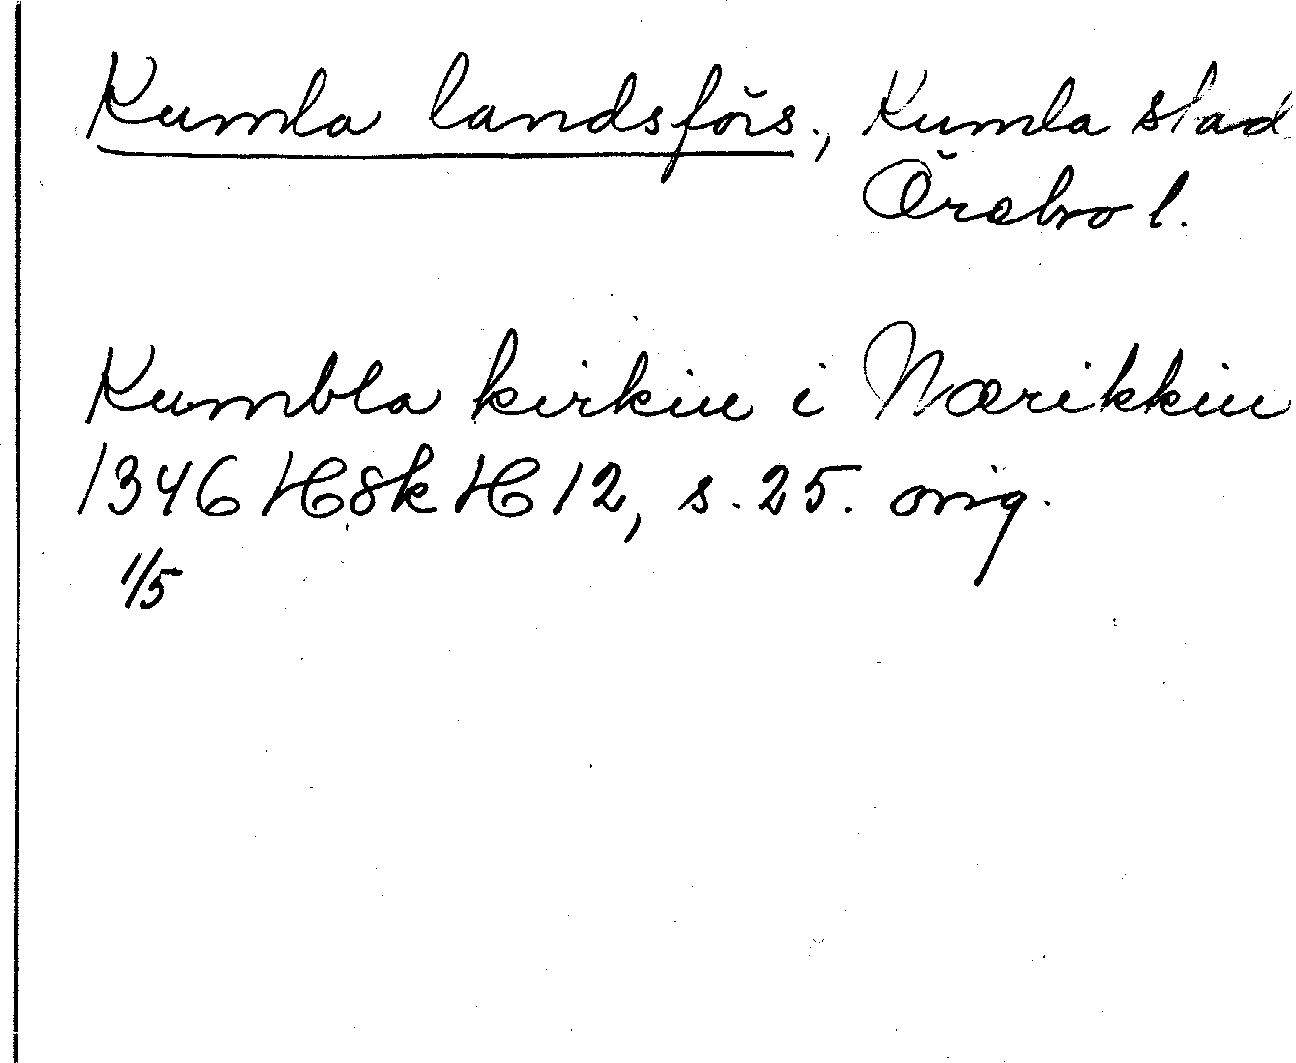 Kumla landsförs., Kumla stad
Örebro l.
Kumbla kirkiu i Nærikkiu
1346 HSk H 12, s. 25. orig.
1/5